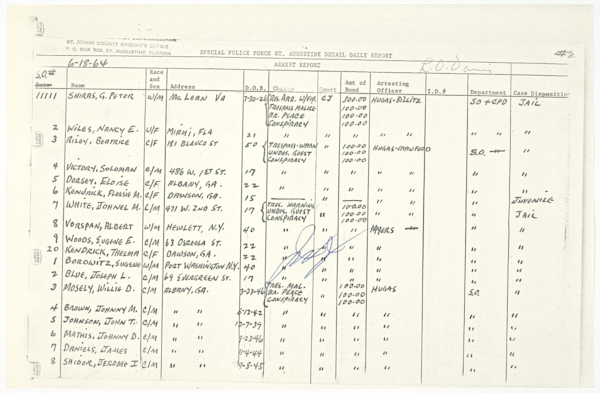 ST. JOHNS COUNTY SHERIFF'S OFFICE
P. O. BOX 309, ST. AUGUSTINE, FLORIDA
SPECIAL POLICE FORCE ST. AUGUSTINE DETAIL DAILY REPORT
6-18-64 ARREST REPORT
S.O.# Name Race and Sex Address D.O.B. Court Amt of Bond Arresting Officer I.D.# Department Case Disposition
11111 SHIRAS, G. PETER W/M MC LEAN VA TRES. WARN. CJ 100.00 HUGAS-BILLITZ SO + CPD JAIL
TRESPASS MALICE 100.00
BR. PEACE 100.00
CONSPIRACY 100.00
2 WILES, NANCY E. W/F MIAMI, FLA 21 " " " " " "
3 RILEY, BEATRICE C/F 181 BLANCO ST 50 TRESPASS-WARN " 100.00 HUGAS-CRAWFORD S.O. "
UNDES. GUEST 100.00
CONSPIRACY 100.00
4 VICTORY, SOLOMAN C/M 486 W. 1ST ST. 17 " " " " " "
5 DORSEY, ELOISE C/F ALBANY, GA. 22 " " " " " "
6 KENDRICK, FLOSSIE M. C/F DAWSON, GA. 15 " " " JUVENILE
7 WHITE, JOHNEL M. C/M 471 W. 2ND ST. 17 TRES. WARNING " 100.00 " " JAIL
UNDES. GUEST 100.00
CONSPIRACY 100.00
8 VORSPAN, ALBERT W/M HEWLETT, N.Y. 40 " " " MYERS " "
9 WOODS, EUGENE E. C/M 63 OSCEOLA ST. 22 " " " " " "
20 KENDRICK, THELMA C/F DAWSON, GA. 22 " " " " " "
1 BOROWITZ, EUGENE W/M PORT WASHINGTON N.Y. 40 " " " " " "
2 BLUE, JOSEPH L. C/M 69 EVERGREEN ST. 17 " " " " " "
3 MOSELY, WILLIE D. C/M ALBANY, GA. 3-23-46 TRES. MAL. " 100.00 HUGAS S.O. "
BR. PEACE 100.00
CONSPIRACY 100.00
4 BROWN, JOHNNY M. C/M " " 6-12-42 " " " " " "
5 JOHNSON, JOHN T. C/M " " 12-7-39 " " " " " "
6 MATHIS, JOHNNY D. C/M " " 9-23-46 " " " " " "
7 DANIELS, JAMES C/M " " 11-4-44 " " " " " "
8 SNIDER, JEROME I C/M " " 9-8-45 " " " " " "